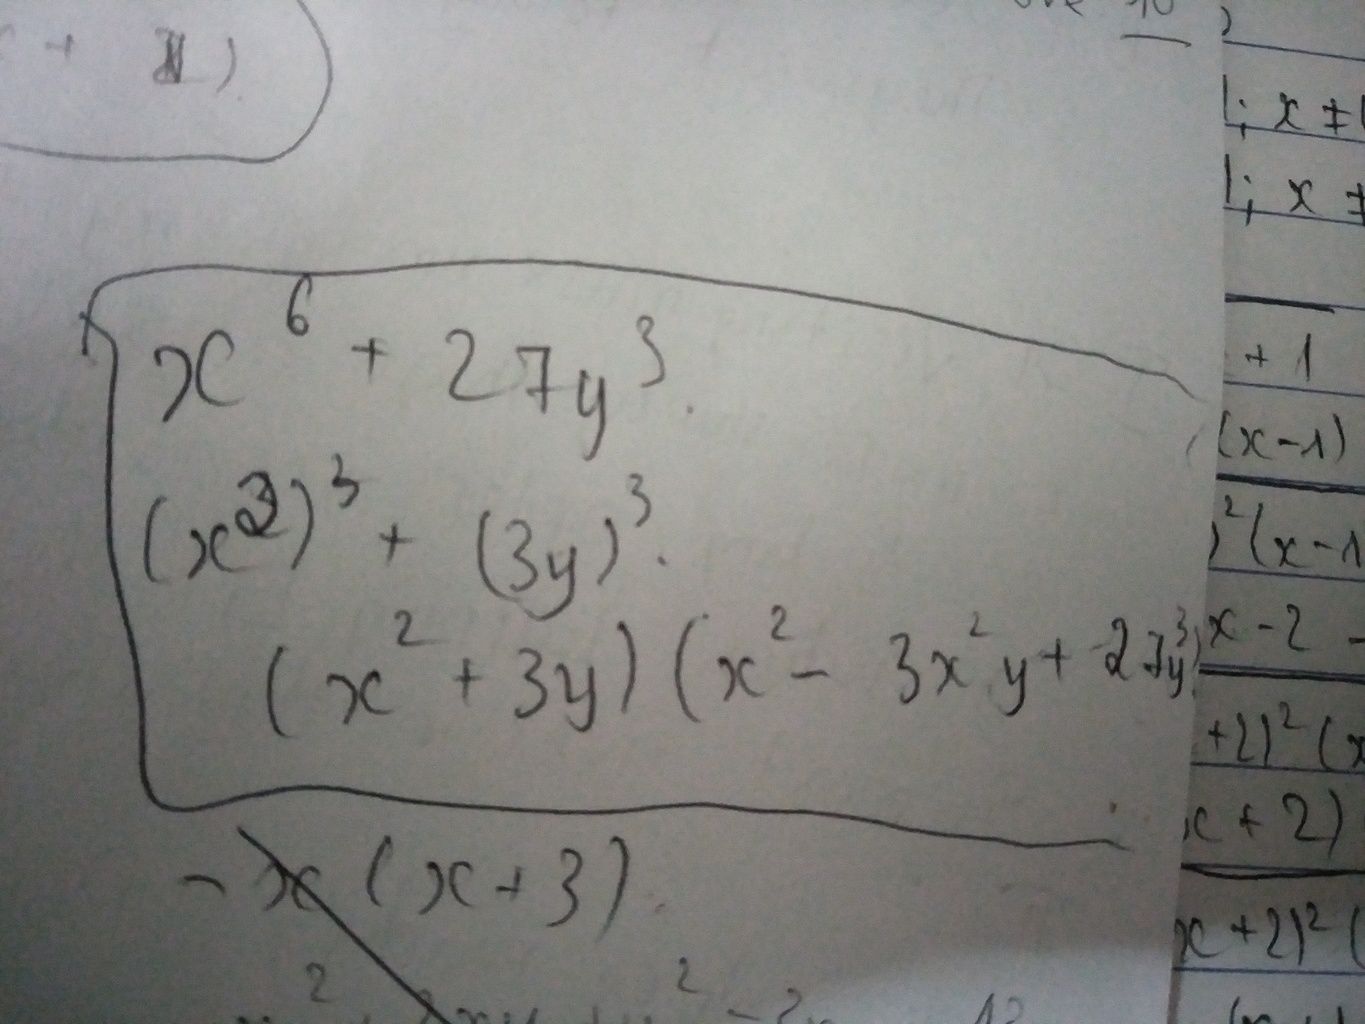 + 1)
x⁶ + 27y³.
(x²)³ + (3y)³.
(x² + 3y) (x² - 3x²y + 27y³)
- x (x + 3).
; x ≠
; x ≠
+ 1
(x-1)
)²(x-1
x - 2 -
+2)² (x
x + 2)
x + 2)² (